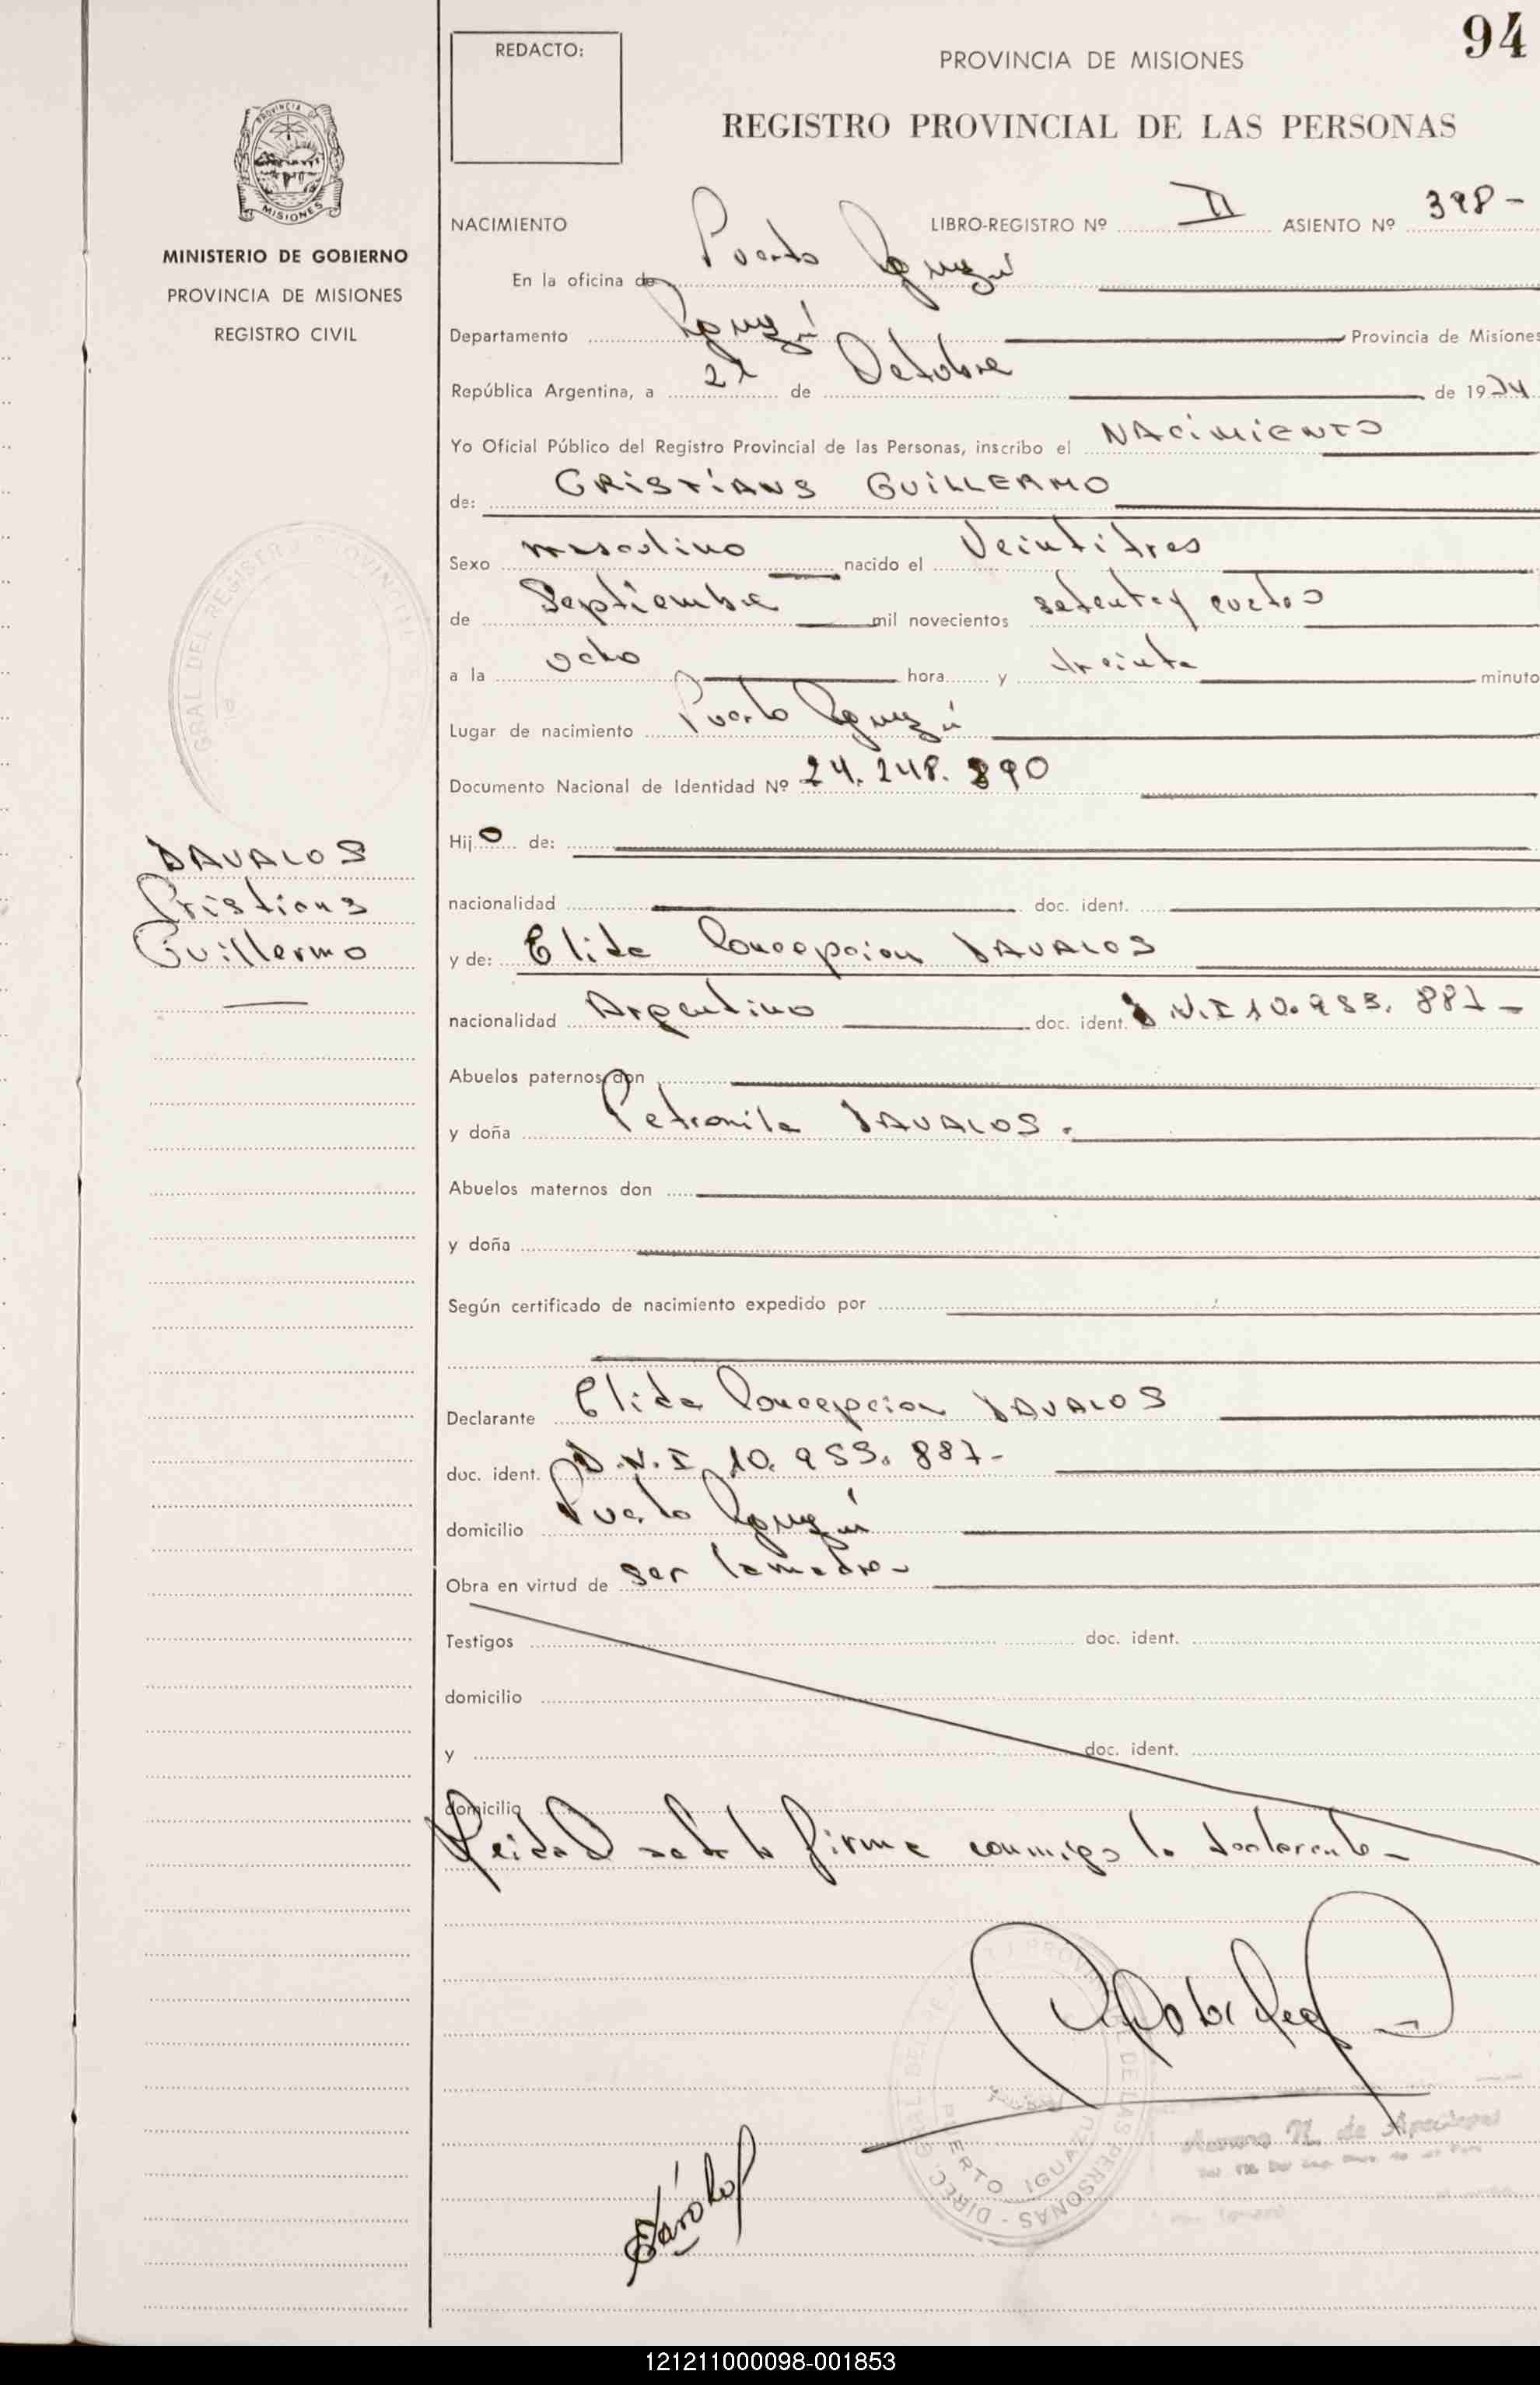 94
REDACTO:
PROVINCIA DE MISIONES
REGISTRO PROVINCIAL DE LAS PERSONAS
PROVINCIA DE
MISIONES
MINISTERIO DE GOBIERNO
PROVINCIA DE MISIONES
REGISTRO CIVIL
NACIMIENTO LIBRO-REGISTRO Nº II ASIENTO Nº 398-
En la oficina de Puerto Iguazú
Departamento Iguazú Provincia de Misiones
República Argentina, a 21 de Octubre de 1974
Yo Oficial Público del Registro Provincial de las Personas, inscribo el NACIMIENTO
de: CRISTIANS GUILLERMO
Sexo masculino nacido el Veintitres
de Septiembre mil novecientos setenta y cuatro
a la ocho hora y treinta minuto
Lugar de nacimiento Puerto Iguazú
Documento Nacional de Identidad Nº 24.248.890
Hijo de:
DAVALOS
Cristians
Guillermo
nacionalidad doc. ident.
y de: Elida Concepcion DAVALOS
nacionalidad Argentino doc. ident. D.N.I 10.953.887-
Abuelos paternos don
y doña Petronila DAVALOS.
Abuelos maternos don
y doña
Según certificado de nacimiento expedido por
Declarante Elida Concepcion DAVALOS
doc. ident. D.N.I 10.953.887-
domicilio Puerto Iguazú
Obra en virtud de ser la madre-
Testigos doc. ident.
domicilio
y doc. ident.
domicilio
Leida el acta la firma conmigo la declarante-
DIREC. GRAL. DEL REGISTRO PROVINCIAL DE LAS PERSONAS
PUERTO IGUAZU
121211000098-001853